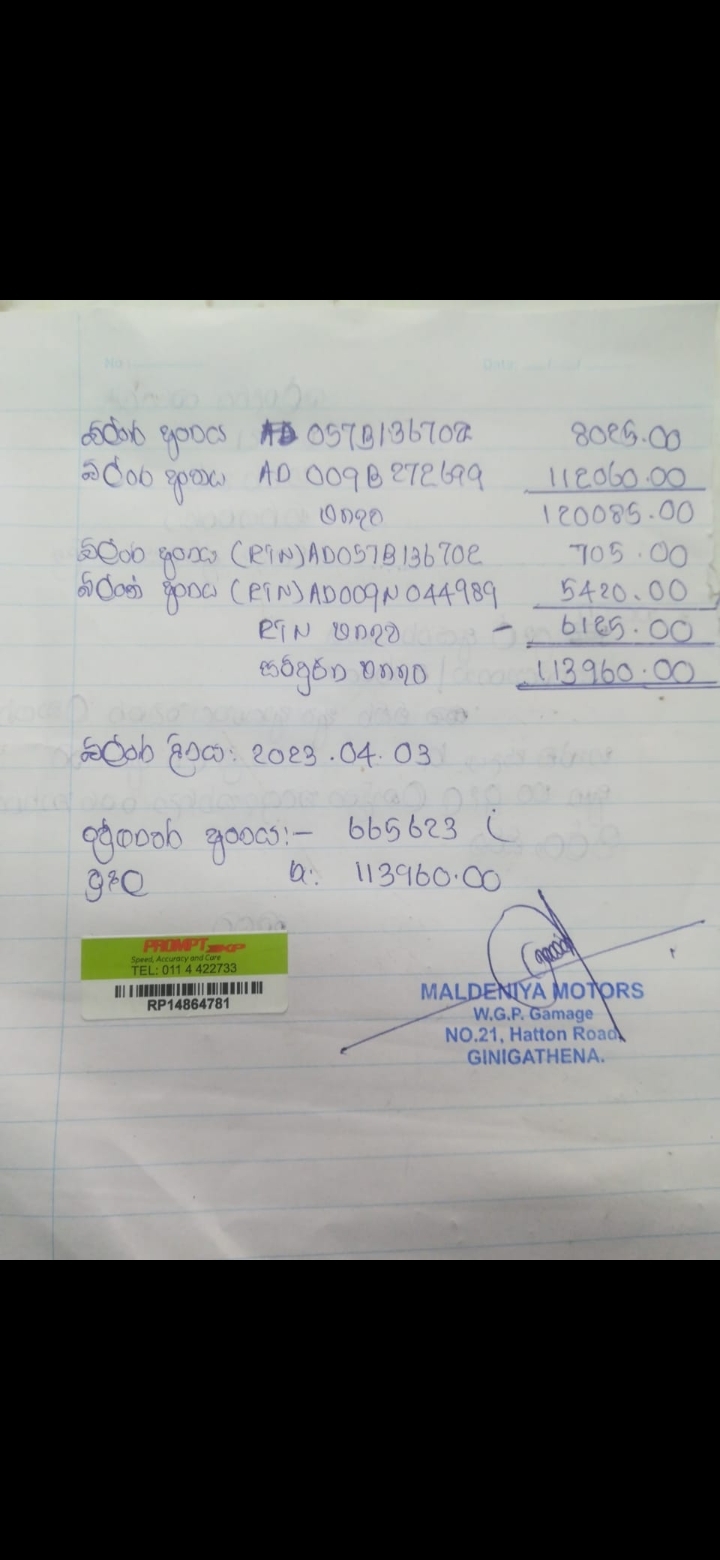 බිල්පත් අංකය AD 057B136702 8025.00
බිල්පත් අංකය AD 009B272699 112060.00
එකතුව 120085.00
බිල්පත් අංකය (RTN)AD057B136702 705.00
බිල්පත් අංකය (RTN)AD009N044989 5420.00
RTN එකතුව - 6125.00
සම්පූර්ණ එකතුව 113960.00
බිල්පත් දිනය: 2023.04.03
චෙක්පත් අංකය:- 665623
මුදල 113960.00
PROMPT XP
Speed, Accuracy and Care
TEL: 011 4 422733
RP14864781
MALDENIYA MOTORS
W.G.P. Gamage
NO.21, Hatton Road,
GINIGATHENA.